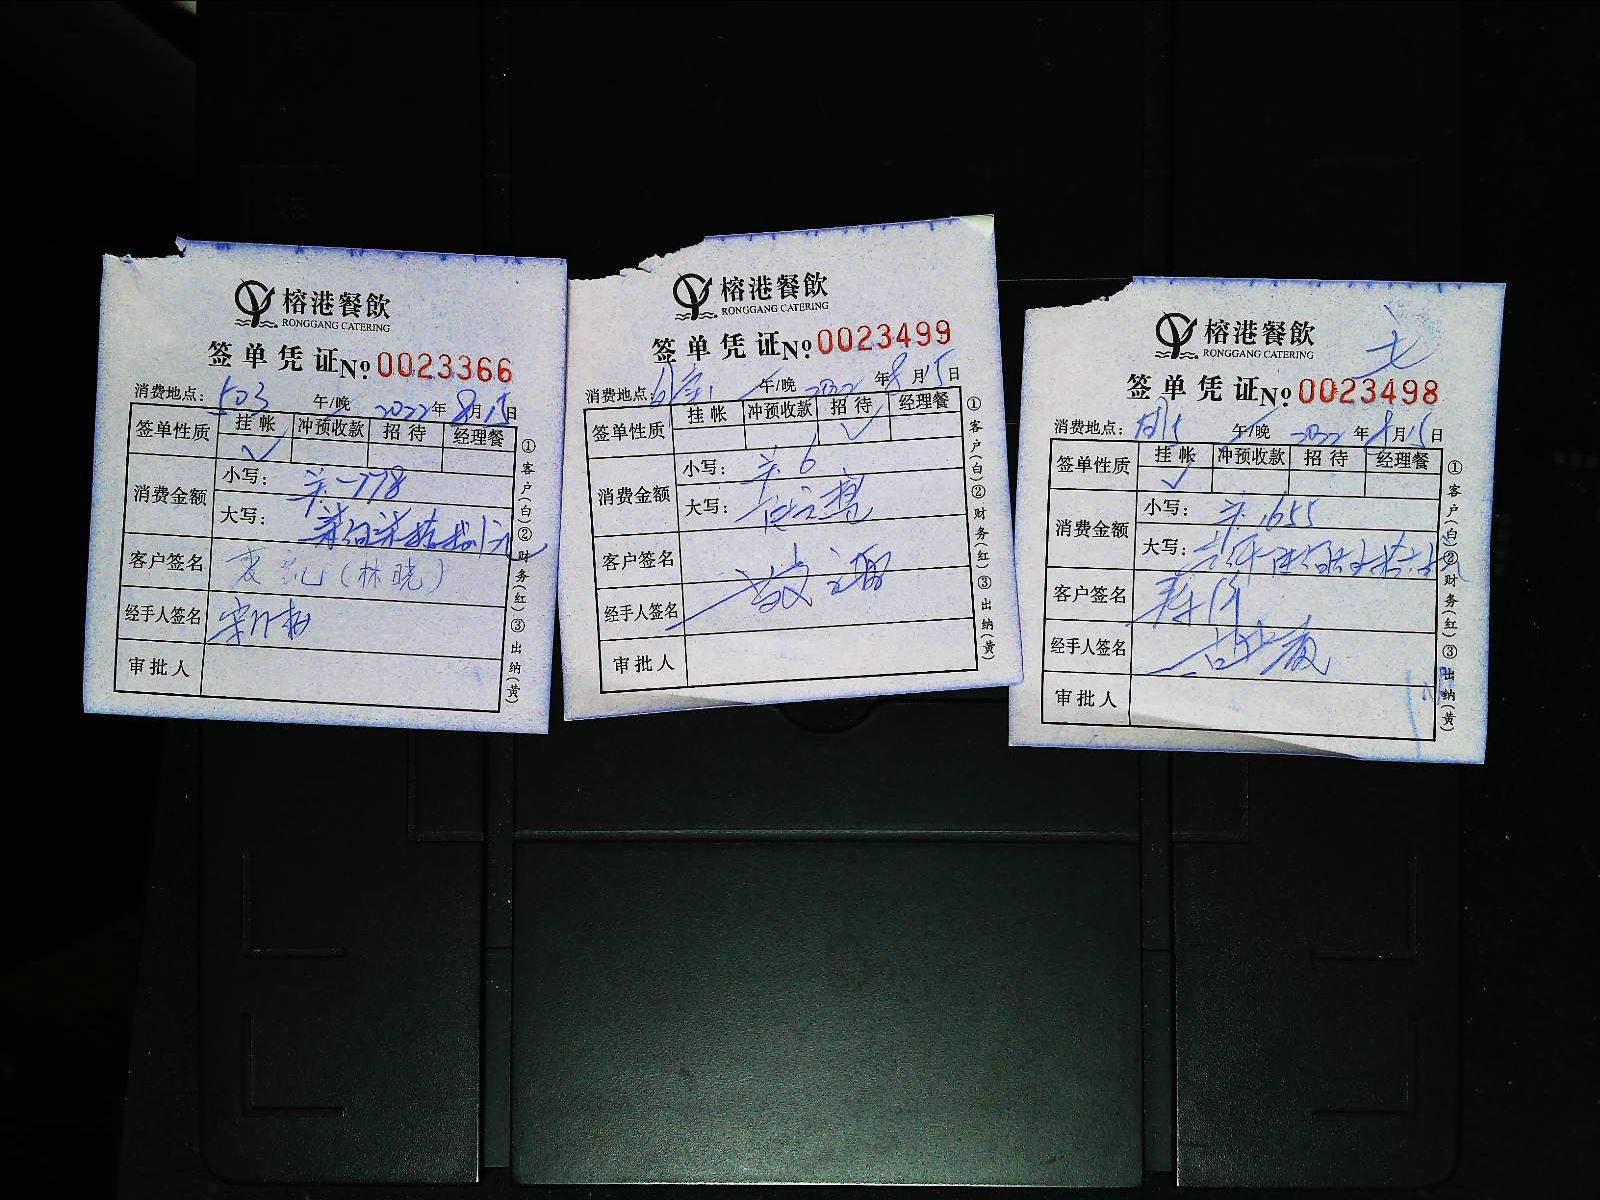 榕港餐飲
RONGGANG CATERING
签单凭证 No 0023366
消费地点: 503 午/晚 2022年8月15日
签单性质 挂帐 冲预收款 招待 经理餐
消费金额 小写: 778
大写: 柒佰柒拾捌元
客户签名 (林晓)
经手人签名
审批人
①客户(白)②财务(红)③出纳(黄)
榕港餐飲
RONGGANG CATERING
签单凭证 No 0023499
消费地点: 午/晚 2022年8月15日
签单性质 挂帐 冲预收款 招待 经理餐
消费金额 小写: 6
大写:
客户签名
经手人签名
审批人
①客户(白)②财务(红)③出纳(黄)
榕港餐飲
RONGGANG CATERING
签单凭证 No 0023498
消费地点: 午/晚 2022年8月15日
签单性质 挂帐 冲预收款 招待 经理餐
消费金额 小写: 1655
大写:
客户签名
经手人签名
审批人
①客户(白)②财务(红)③出纳(黄)